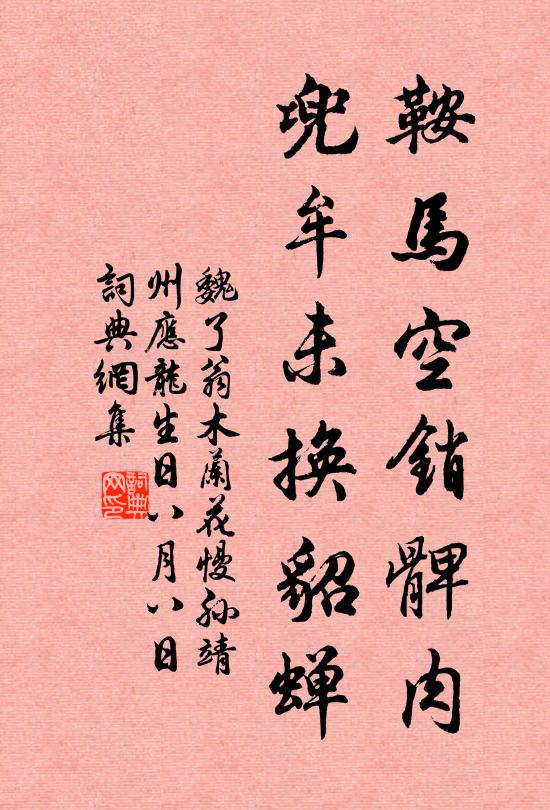 鞍馬空銷髀肉
兜牟未換貂蟬
魏了翁木蘭花慢孫靖
州應龍生日八月八日
詞典網集
詞典网印